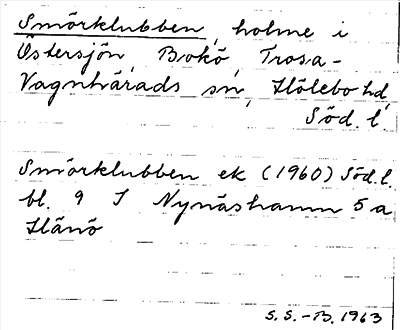 Smörklubben, holme i
Östersjön, Bokö, Trosa-
Vagnhärads sn, Hölebo hd,
Söd. l.
Smörklubben ek (1960) Söd. l.
bl. 9 I Nynäshamn 5 a
Hånö
S. S.-B. 1963